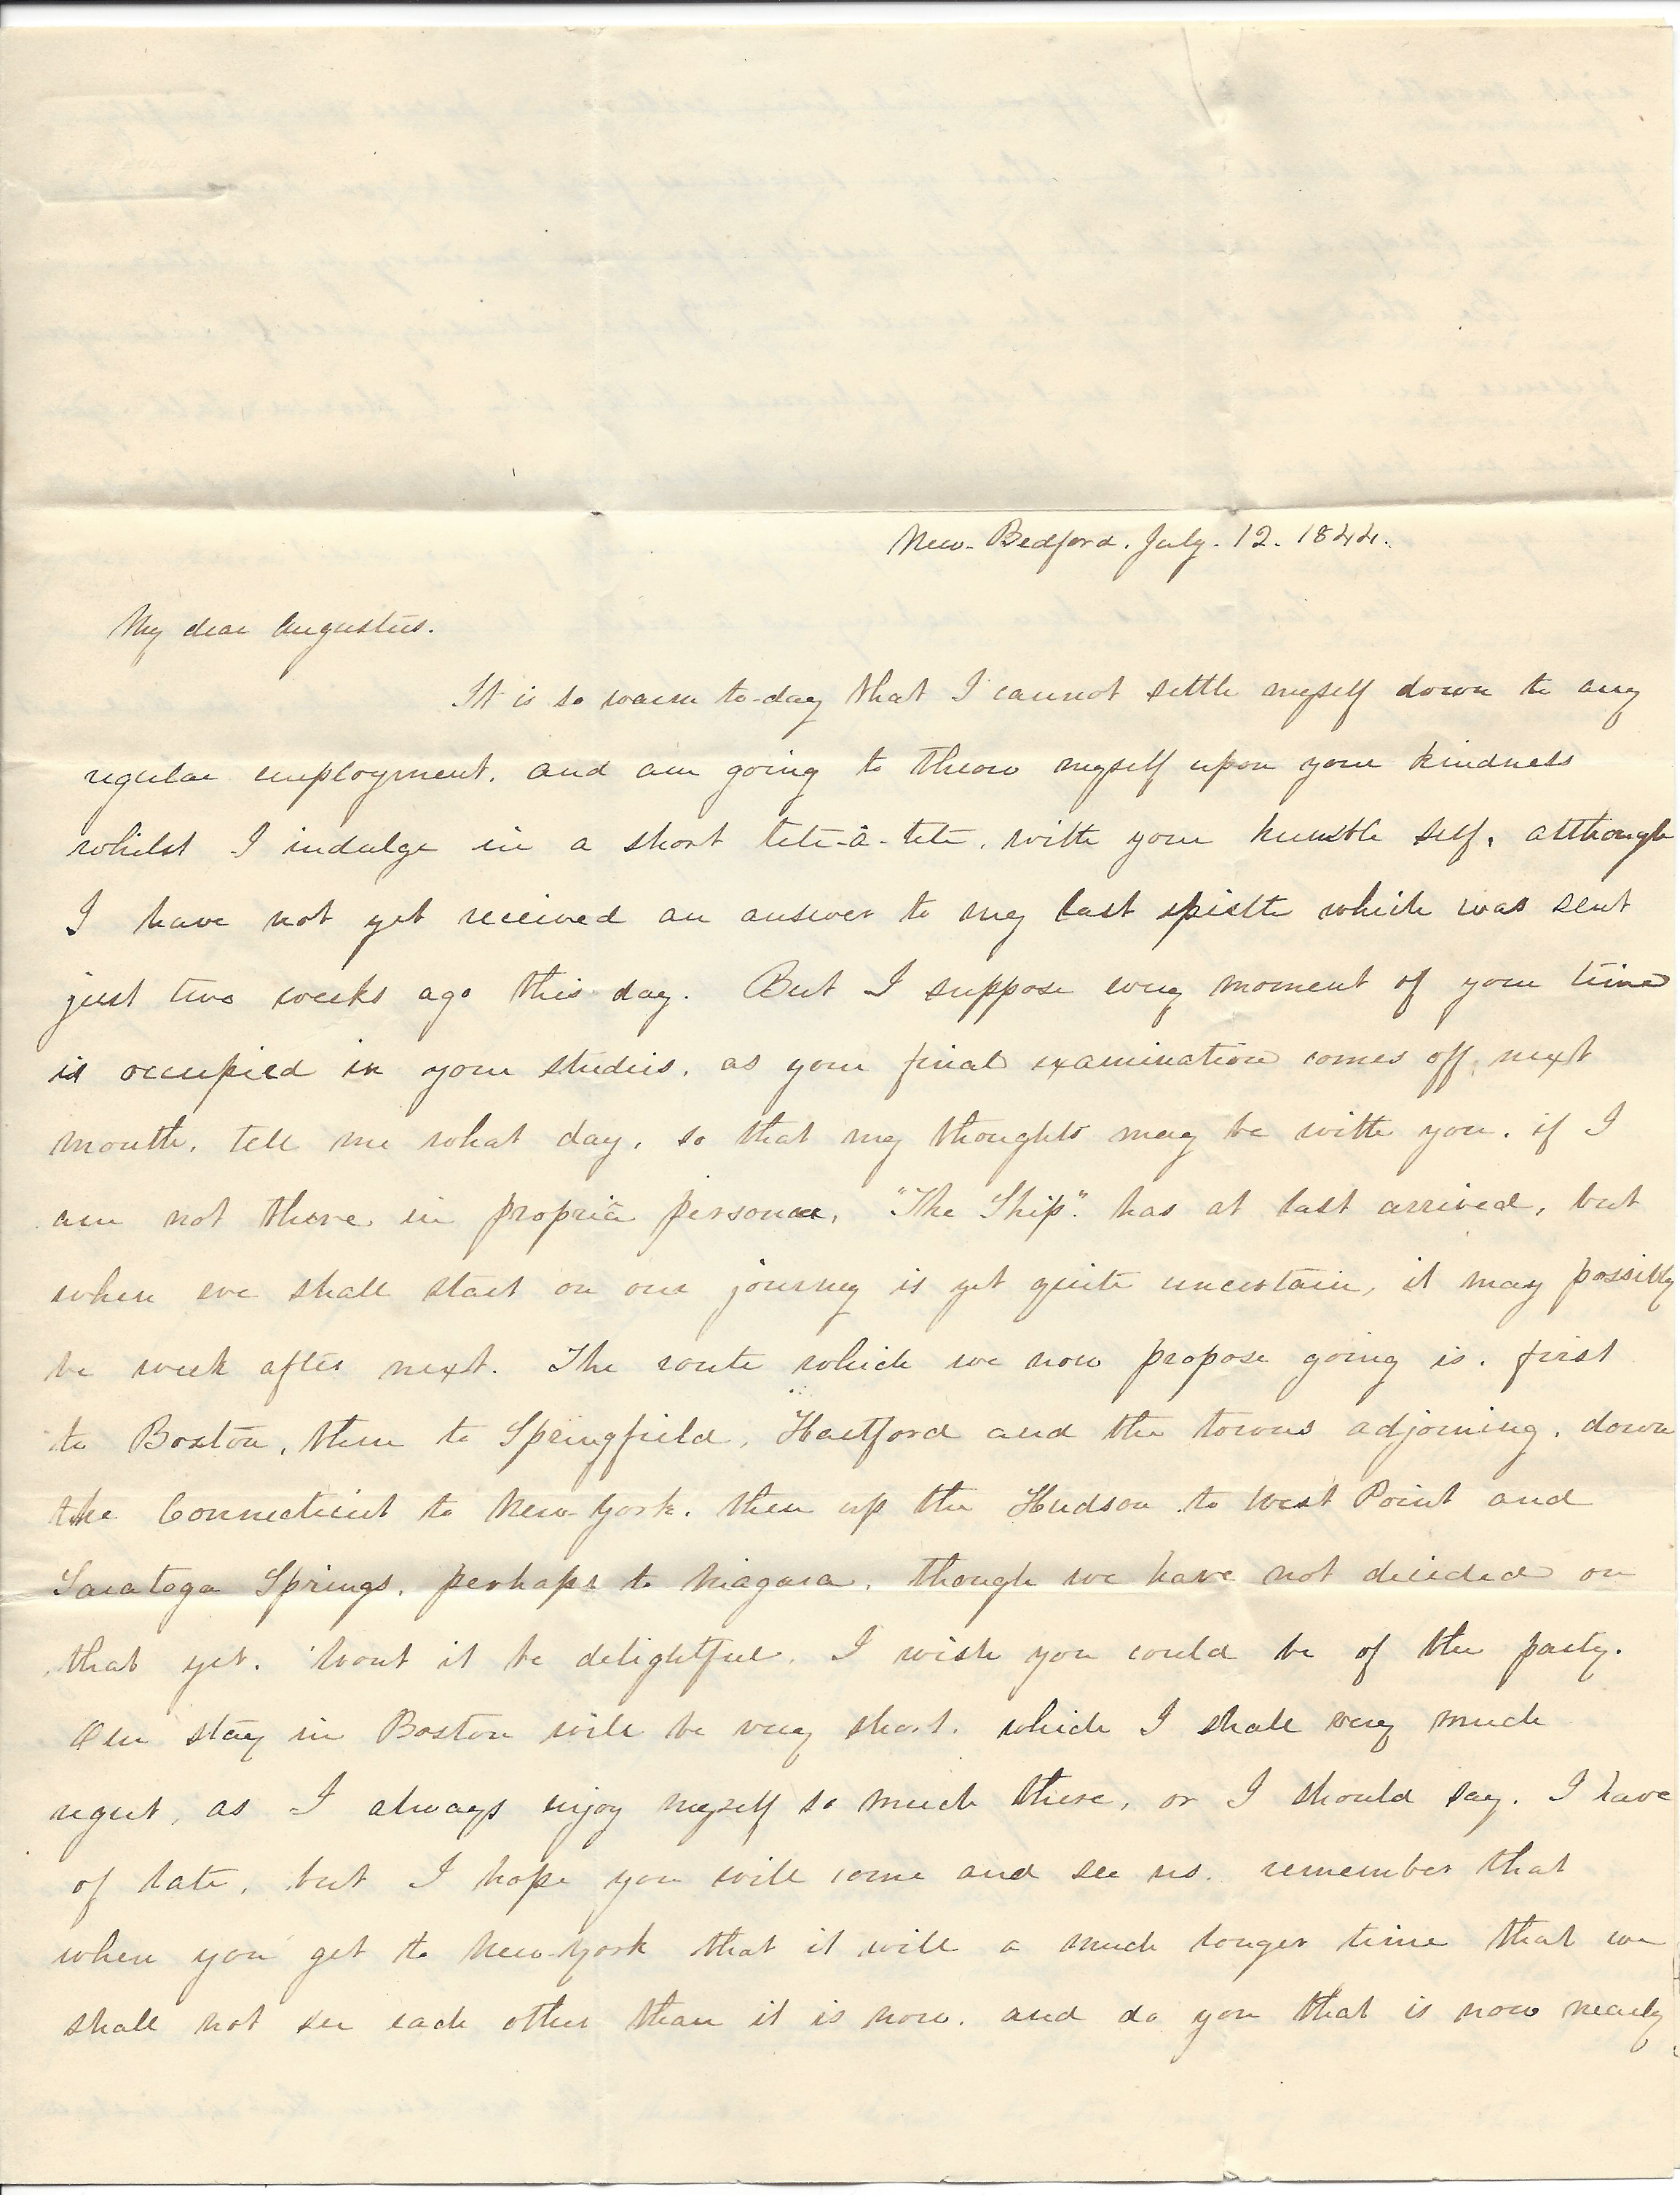 New-Bedford. July. 12. 1844.
My dear Augustus.
It is so warm to-day that I cannot settle myself down to any
regular employment, and am going to throw myself upon your kindness
whilst I indulge in a short tete-a-tete, with your humble self, although
I have not yet received an answer to my last epistle which was sent
just two weeks ago this day. But I suppose every moment of your time
is occupied in your studies, as your final examination comes off next
month, tell me what day, so that my thoughts may be with you, if I
am not there in propria personae, "The Ship" has at last arrived, but
when we shall start on our journey is yet quite uncertain, it may possibly
be week after next. The route which we now propose going is, first
to Boston, then to Springfield, Hartford and the towns adjoining, down
the Connecticut to New-York, then up the Hudson to West Point and
Saratoga Springs, perhaps to Niagara, though we have not decided on
that yet. Wont it be delightful, I wish you could be of the party.
Our stay in Boston will be very short, which I shall very much
regret, as I always enjoy myself so much there, or I should say, I have
of late, but I hope you will come and see us, remember that
when you get to New-York that it will a much longer time that we
shall not see each other than it is now, and do you that is now nearly